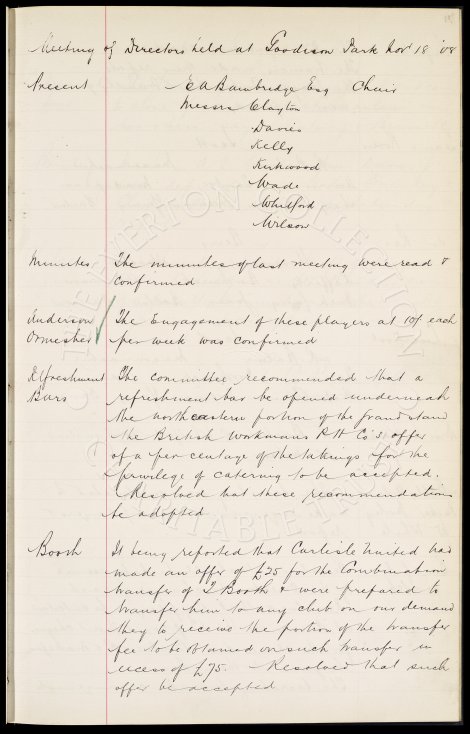 Meeting of Directors held at Goodison Park Nov 18 '08
Present E A Bainbridge Esq Chair
Messrs Clayton
Davies
Kelly
Kirkwood
Wade
Whitford
Wilson
Minutes The minutes of last meeting were read &
confirmed
Anderson The Engagement of these players at 10/ each
Ormesher per week was confirmed
Refreshment The committee recommended that a
Bars refreshment bar be opened underneath
the north eastern portion of the grand stand
the British Workmans P H Co's offer
of a per centage of the takings for the
privilege of catering to be accepted.
Resolved that these recommendations
be adopted
Booth It being reported that Carlisle United had
made an offer of £75 for the Combination
transfer of T Booth & were prepared to
transfer him to any club on our demand
they to receive the portion of the transfer
fee to be obtained on such transfer in
excess of £75. Resolved that such
offer be accepted
THE EVERTON COLLECTION
CHARITABLE TRUST